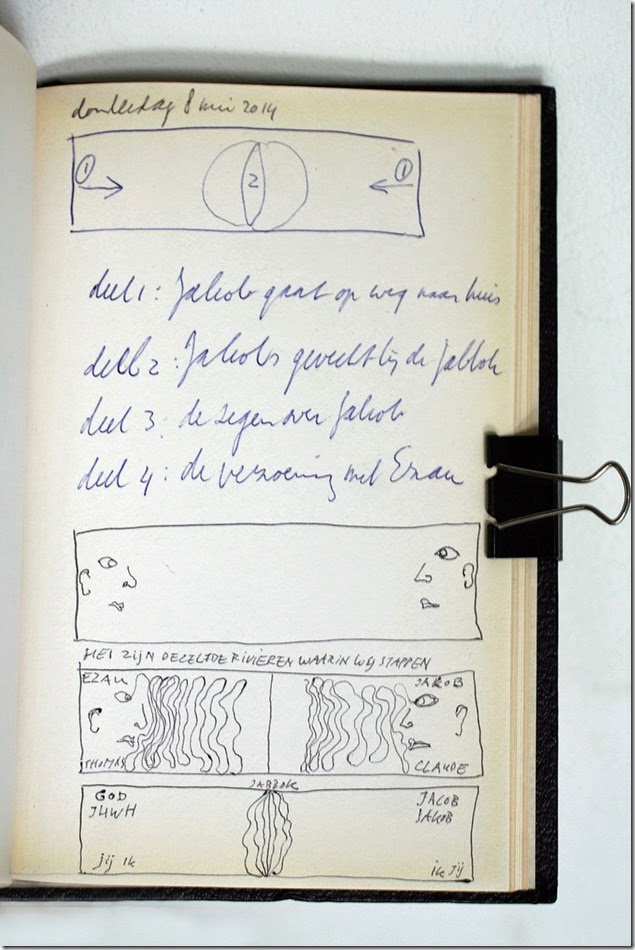 donderdag 8 mei 2014
1 2 1
deel 1: Jakob gaat op weg naar huis
deel 2: Jakobs gevecht bij de Jabbok
deel 3: de zegen over Jakob
deel 4: de verzoening met Ezau
HET ZIJN DEZELFDE RIVIEREN WAARIN WIJ STAPPEN
EZAU JAKOB
THOMAS CLAUDE
JABBOK
GOD JACOB
JHWH JAKOB
jij ik ik jij